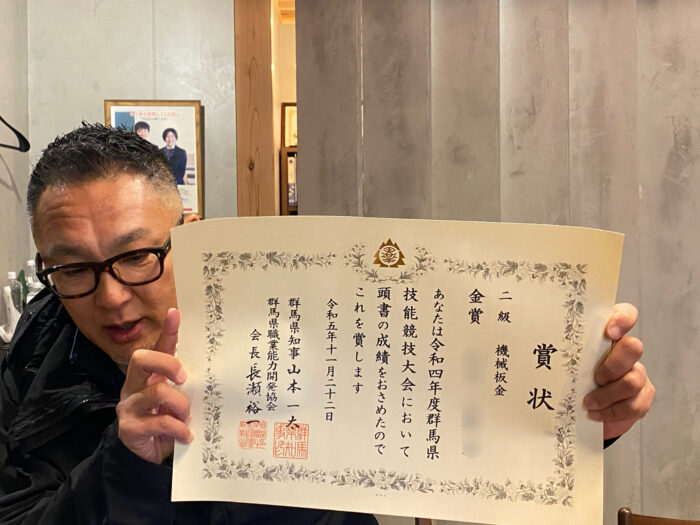 賞状
二級 機械板金
金賞
あなたは令和四年度群馬県
技能競技大会において
頭書の成績をおさめたので
これを賞します
令和五年十一月二十二日
群馬県知事 山本一太
群馬県職業能力開発協会
会長 長瀬裕一